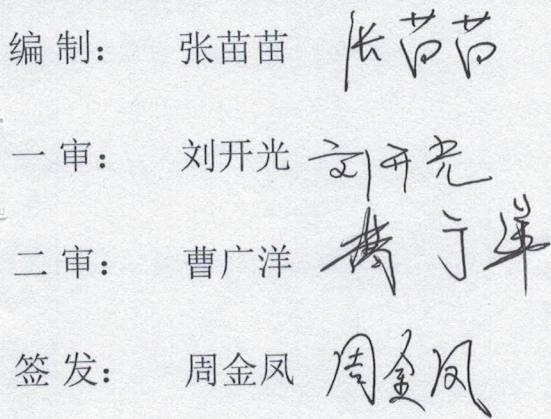 编 制： 张苗苗 张苗苗
一 审： 刘开光 刘开光
二 审： 曹广洋 曹广洋
签 发： 周金凤 周金凤